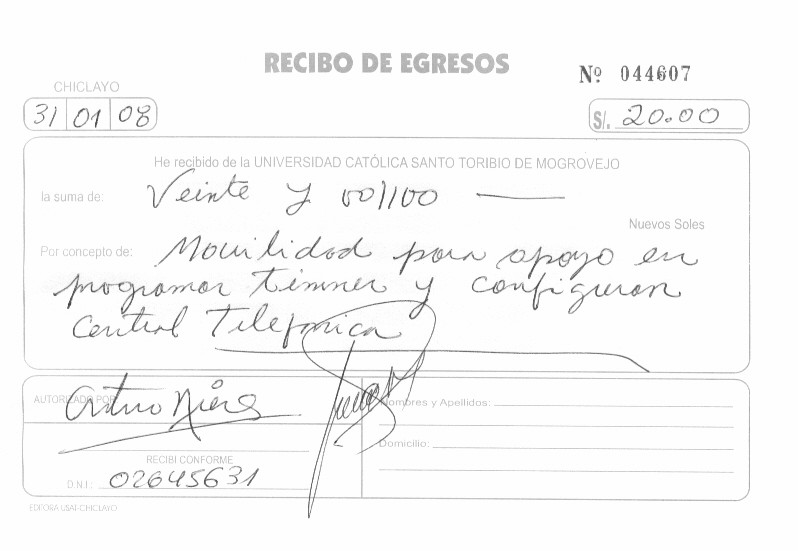 RECIBO DE EGRESOS
Nº 044607
CHICLAYO
31 01 08
S/. 20.00
He recibido de la UNIVERSIDAD CATÓLICA SANTO TORIBIO DE MOGROVEJO
la suma de: Veinte y 00/100
Nuevos Soles
Por concepto de: Movilidad para apoyo en
programar timmer y configuran
Central Telefonica
AUTORIZADO POR
Arturo
Nombres y Apellidos:
Domicilio:
RECIBI CONFORME
D.N.I.: 02645631
EDITORA USAT-CHICLAYO